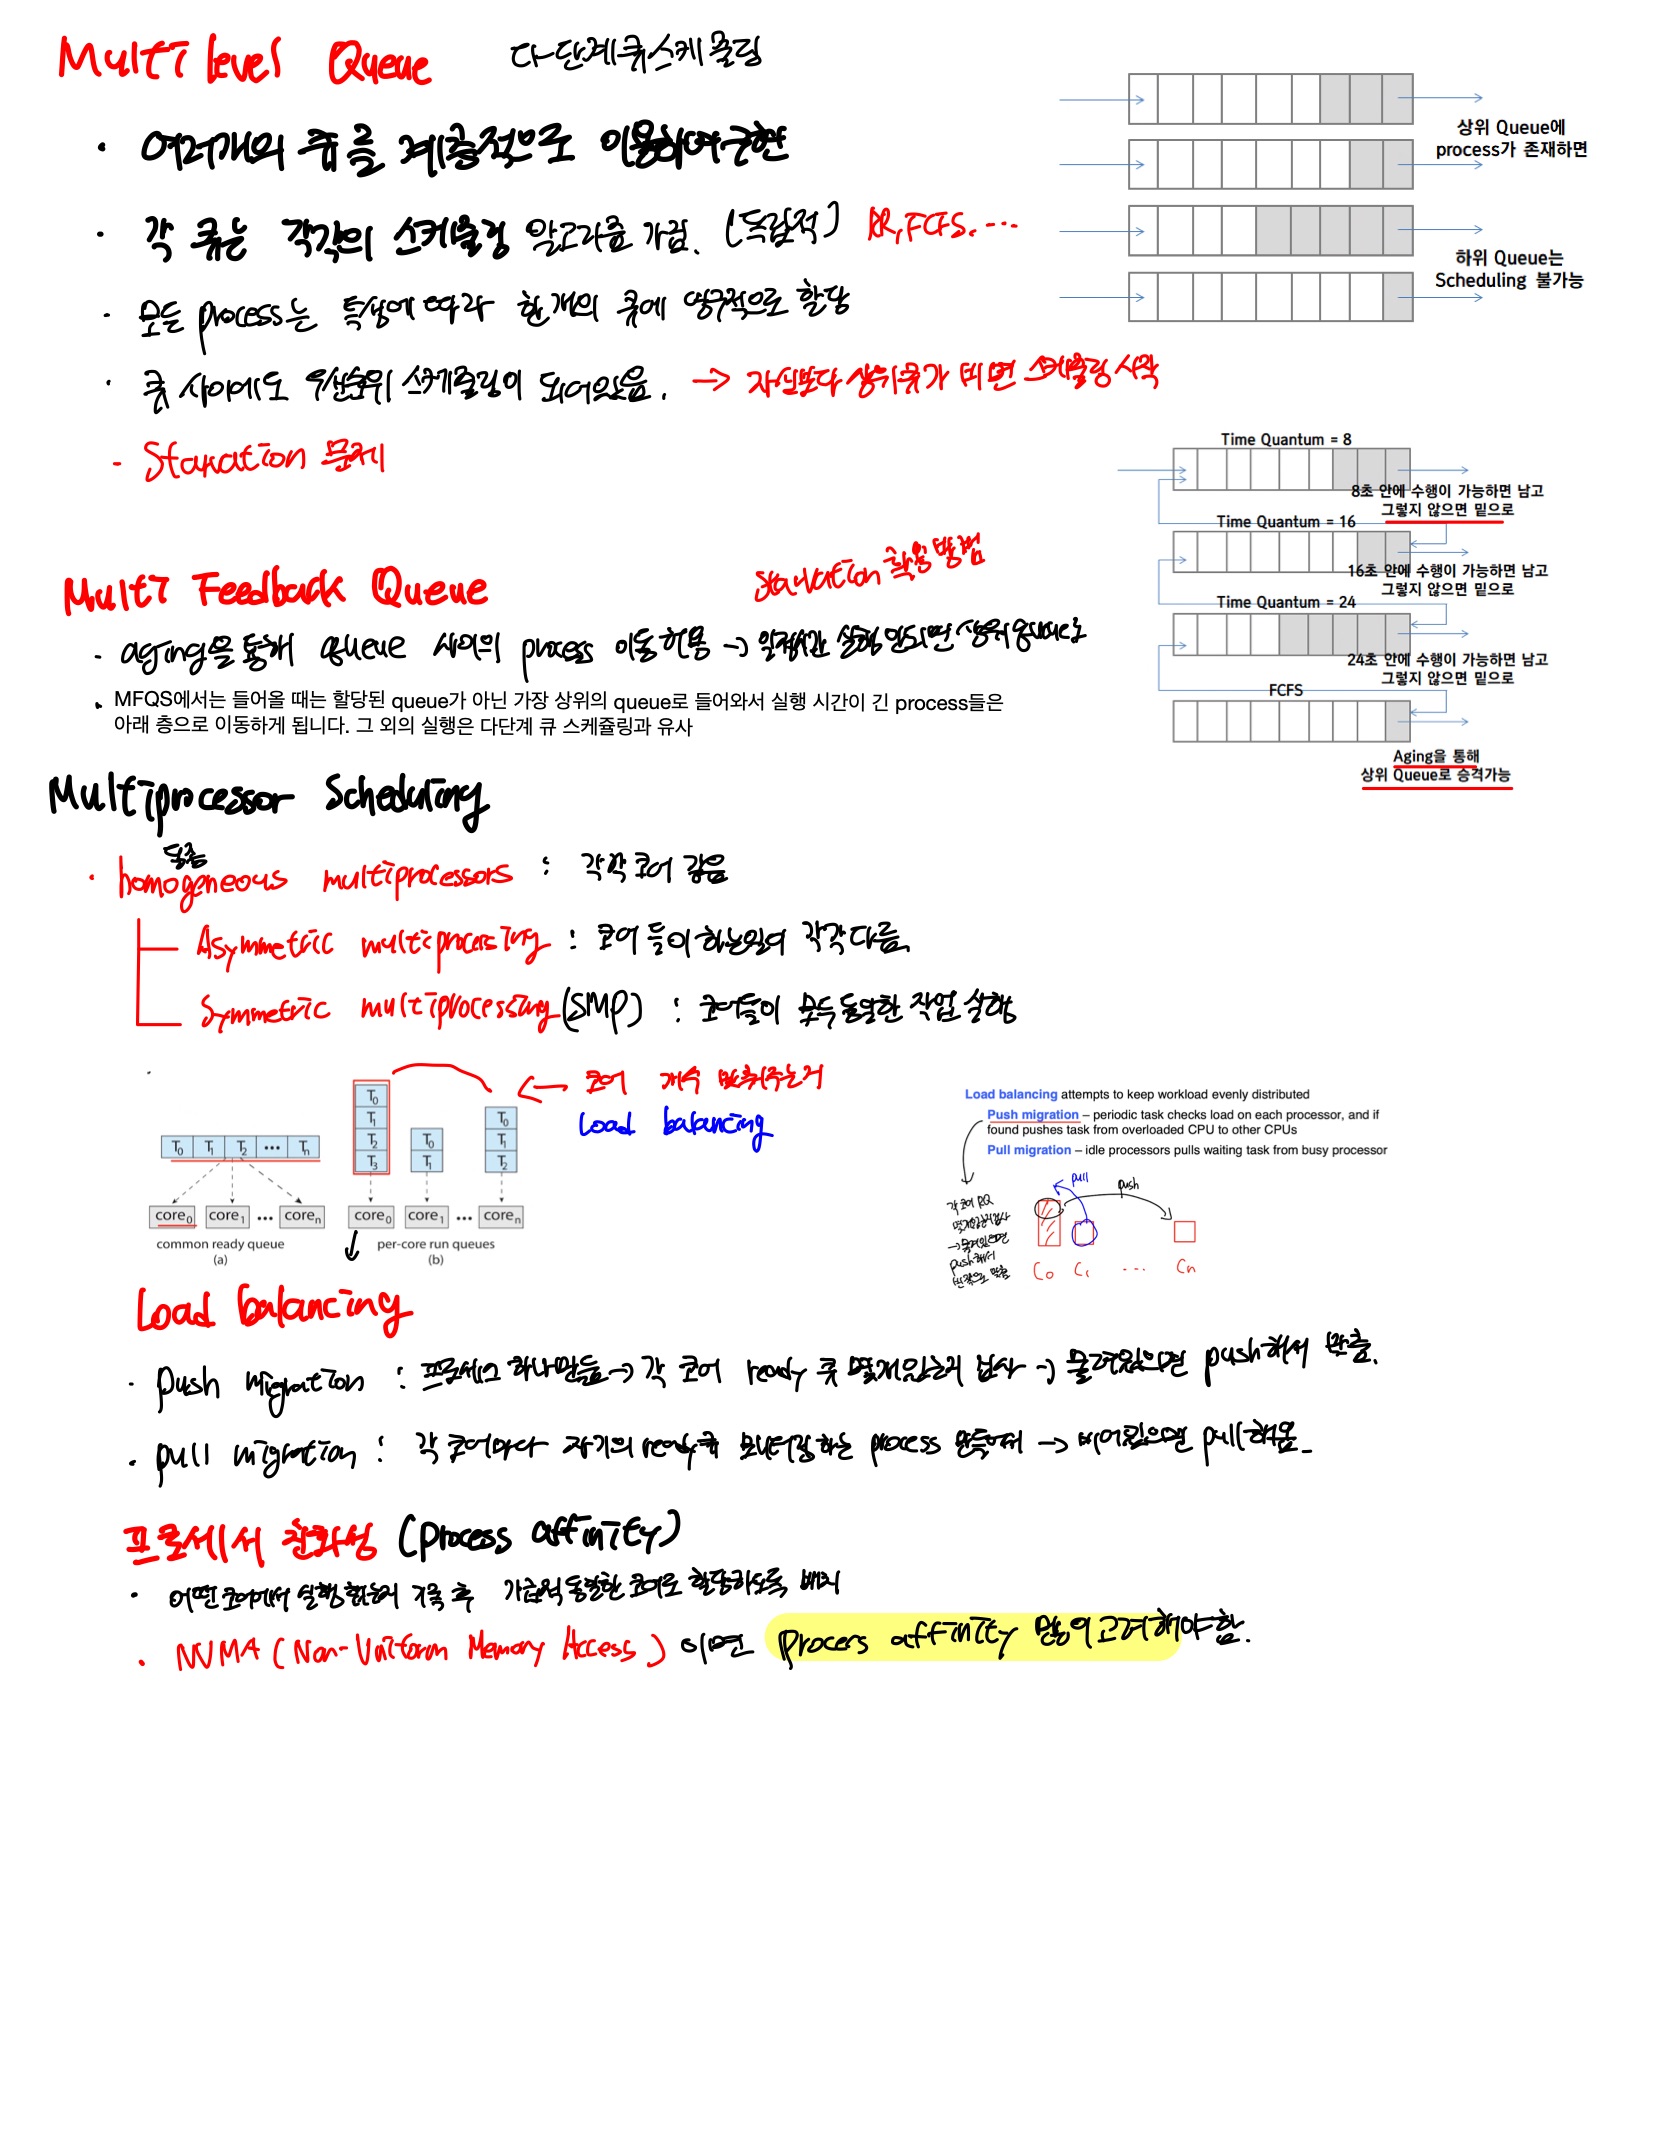 Multi level Queue 다단계 큐 스케쥴링
· 여러개의 큐를 계층적으로 이용하여 구현
· 각 큐는 각각의 스케쥴링 알고리즘 가짐. (독립적) RR, FCFS. ...
· 모든 process는 특성에 따라 한개의 큐에 영구적으로 할당
· 큐 사이에도 우선순위 스케쥴링이 되어있음. → 자신보다 상위큐가 비면 스케쥴링 시작
- Starvation 문제
상위 Queue에
process가 존재하면
하위 Queue는
Scheduling 불가능
Multi Feedback Queue
Starvation 활용 방법
- aging을 통해 queue 사이의 process 이동 허용 → 일정시간 실행 안되면 상위 queue로
· MFQS에서는 들어올 때는 할당된 queue가 아닌 가장 상위의 queue로 들어와서 실행 시간이 긴 process들은
아래 층으로 이동하게 됩니다. 그 외의 실행은 다단계 큐 스케쥴링과 유사
Time Quantum = 8
8초 안에 수행이 가능하면 남고
그렇지 않으면 밑으로
Time Quantum = 16
16초 안에 수행이 가능하면 남고
그렇지 않으면 밑으로
Time Quantum = 24
24초 안에 수행이 가능하면 남고
그렇지 않으면 밑으로
FCFS
Aging을 통해
상위 Queue로 승격가능
Multiprocessor Scheduling
동종
· homogeneous multiprocessors : 각각 코어 같음
Asymmetric multiprocessing : 코어들이 하는일이 각각 다름.
Symmetric multiprocessing (SMP) : 코어들이 모두 동일한 작업 실행
T0 T1 T2 ... Tn
core0 core1 ... coren
common ready queue
(a)
T0 T1 T2 T3
T0 T1
T0 T1 T2
core0 core1 ... coren
per-core run queues
(b)
← 코어 개수 맞춰주는거
Load balancing
Load balancing attempts to keep workload evenly distributed
Push migration – periodic task checks load on each processor, and if
found pushes task from overloaded CPU to other CPUs
Pull migration – idle processors pulls waiting task from busy processor
pull
push
각 코어 RQ
몇개있는지 검사
→ 몰려있으면
push해서
C0 C1 ... Cn
Load balancing
· push migration : 프로세스 하나만듦 → 각 코어 ready 큐 몇개있는지 검사 → 몰려있으면 push해서 맞춤.
· pull migration : 각 코어마다 자기의 ready큐 모니터링하는 process 만들어서 → 비어있으면 pull해옴.
프로세서 친화성 (process affinity)
· 어떤 코어에서 실행했는지 기록 후 가급적 동일한 코어로 할당하도록 배치
· NUMA (Non-Uniform Memory Access) 이면 process affinity 많이 고려해야함.